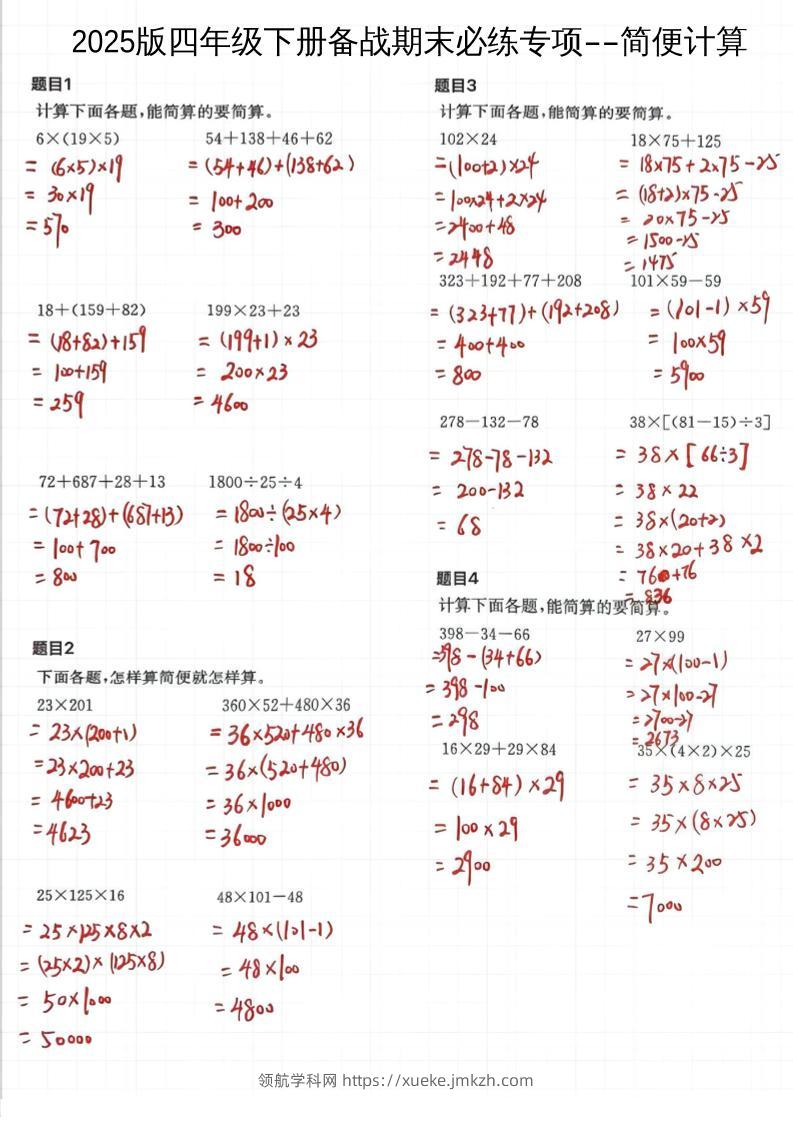 2025版四年级下册备战期末必练专项--简便计算
题目1
计算下面各题,能简算的要简算。
6×(19×5)
= (6×5)×19
= 30×19
=570
54+138+46+62
=(54+46)+(138+62)
= 100+200
= 300
18+(159+82)
= (18+82)+159
= 100+159
=259
199×23+23
= (199+1)×23
= 200×23
=4600
72+687+28+13
=(72+28)+(687+13)
=100+700
=800
1800÷25÷4
=1800÷(25×4)
= 1800÷100
= 18
题目2
下面各题,怎样算简便就怎样算。
23×201
= 23×(200+1)
=23×200+23
= 4600+23
=4623
360×52+480×36
=36×520+480×36
=36×(520+480)
=36×1000
=36000
25×125×16
= 25×125×8×2
= (25×2)×(125×8)
= 50×1000
= 50000
48×101-48
= 48×(101-1)
= 48×100
=4800
题目3
计算下面各题,能简算的要简算。
102×24
=(100+2)×24
=100×24+2×24
=2400+48
=2448
18×75+125
= 18×75+2×75-25
= (18+2)×75-25
= 20×75-25
=1500-25
= 1475
323+192+77+208
= (323+77)+(192+208)
= 400+400
= 800
101×59-59
=(101-1)×59
= 100×59
= 5900
278-132-78
= 278-78-132
= 200-132
= 68
38×[(81-15)÷3]
= 38×[66÷3]
= 38×22
= 38×(20+2)
= 38×20+38×2
= 760+76
= 836
题目4
计算下面各题,能简算的要简算。
398-34-66
=398-(34+66)
= 398-100
= 298
27×99
= 27×(100-1)
= 27×100-27
= 2700-27
= 2673
16×29+29×84
= (16+84)×29
= 100×29
= 2900
35×(4×2)×25
= 35×8×25
= 35×(8×25)
= 35×200
=7000
领航学科网 https://xueke.jmkzh.com